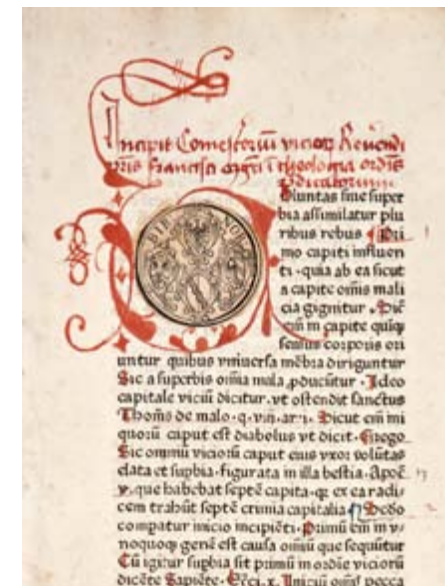 Incipit Comestorium vicior Reuendi
pris Francisci ordis
pdicatorum
Eluntas siue super
bia assimilatur plu
ribus rebus Pri
mo capiti influen
ti quia ab ea sicut
a capite omīs mali
cia gignitur Sic
em̄ in capite quīqz
sensus corporis ori
BIB NOR
untur quibus vniuersa mēbra diriguntur
Sic a superbis omīa mala ꝓducūtur Ideo
capitale viciū dicitur. vt ostendit sanctus
Thomas de malo. q. viii. ar. i. Sicut em̄ mi
quorū caput est diabolus vt dicit. Grego.
Sic omniū viciorū caput eius vxor volūtas
elata et supbia. figurata in illa bestia. Apoc̄
v. que habebat septē capita. qz ex ea radi
cem trahūt septē crimia capitalia Scdo
compatur inicio incipiēti. Primū em̄ in v
noquoqz gene est causa omiū que sequūtur
Cū igitur supbia sit primū in ordīe viciorū
dicēte Sapiēte. Ecci. x. Iniciū omis pecca